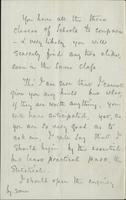 You have all the three
classes of Schools to compare
& very likely you will
scarcely find any two alike,
even in the same class.
Tho' I am sure that I cannot
give you any hints but what,
if they are worth anything, you
have anticipated, yet, as
you are so very good as to
ask me, I will say that I
should begin by the essential
but less practical part, the
Statistical.
I should open the enquiry
by some